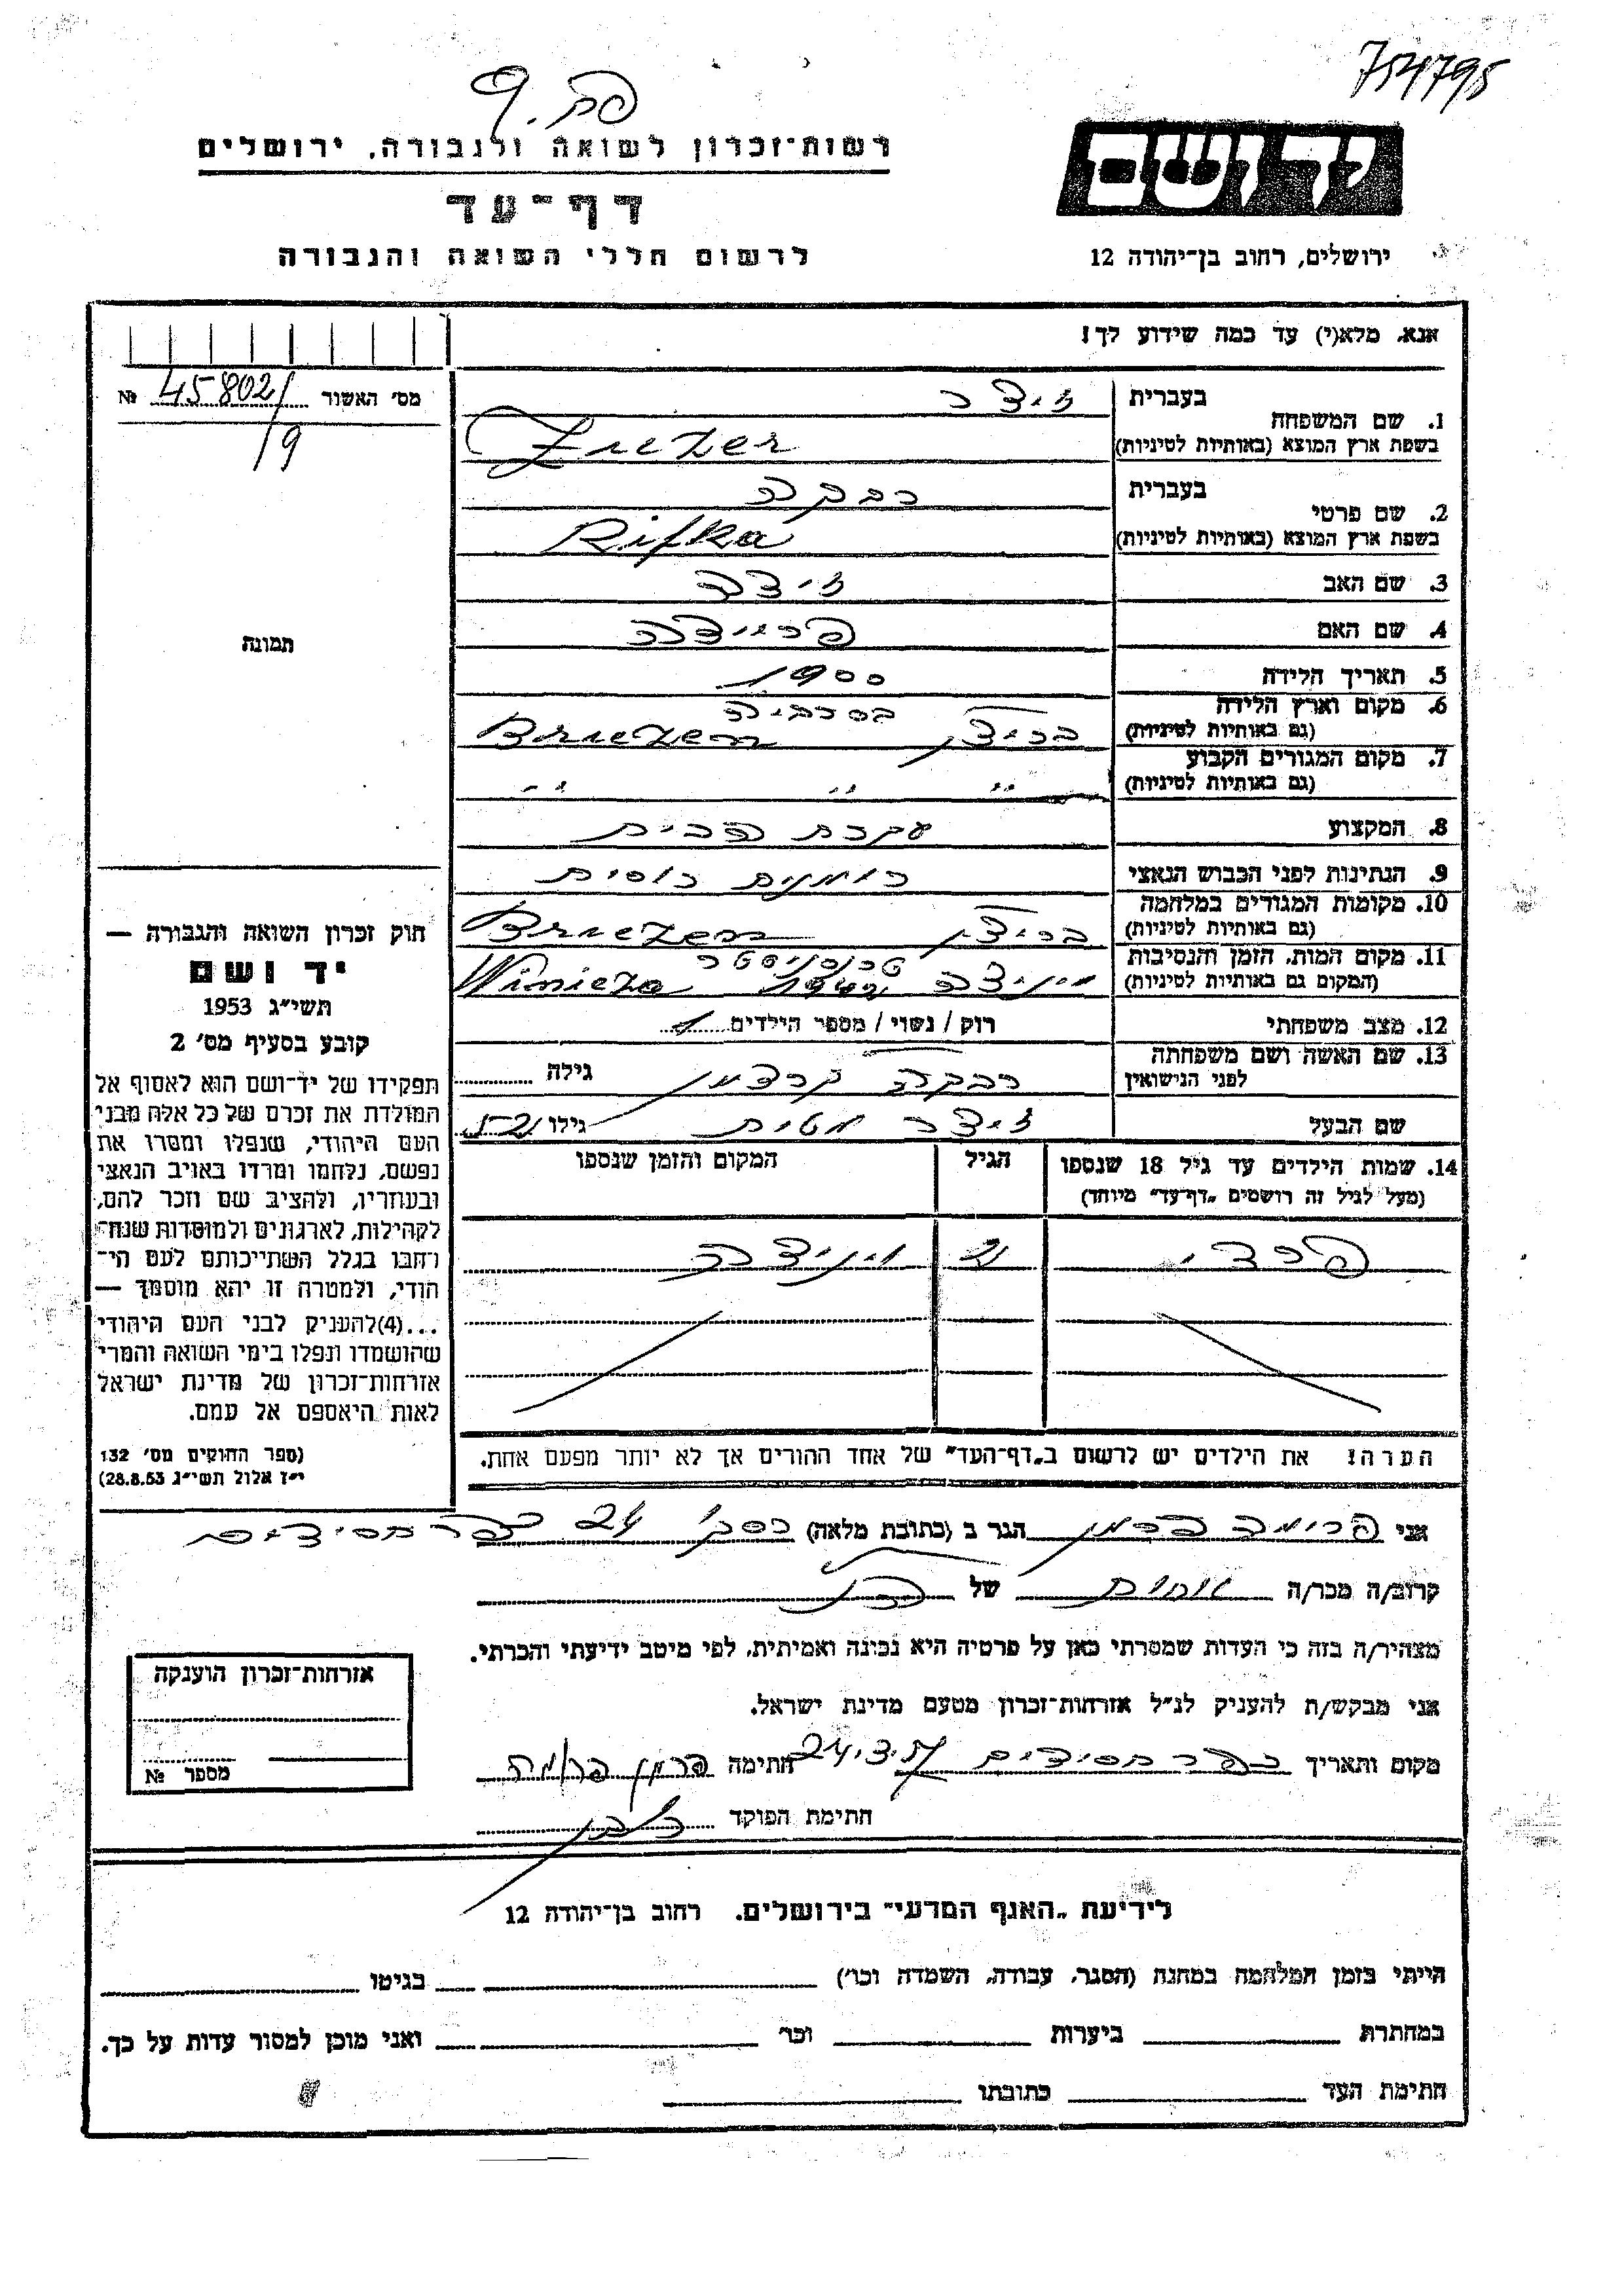 754795
רשות-זכרון לשואה ולגבורה, ירושלים
דף-עד
לרשום חללי השואה והגבורה
יד ושם
ירושלים, רחוב בן-יהודה 12
אנא, מלא(י) עד כמה שידוע לך!
מס' האשור 45802/ №
19
תמונה
1. שם המשפחה
בעברית
בשפת ארץ המוצא (באותיות לטיניות)
2. שם פרטי
בעברית רבקה
בשפת ארץ המוצא (באותיות לטיניות) Rifka
3. שם האב
4. שם האם פריידה
5. תאריך הלידה 1900
6. מקום וארץ הלידה בסרביה
(גם באותיות לטיניות)
7. מקום המגורים הקבוע
(גם באותיות לטיניות) " " "
8. המקצוע עקרת הבית
9. הנתינות לפני הכבוש הנאצי
10. מקומות המגורים במלחמה
(גם באותיות לטיניות)
11. מקום המות, הזמן והנסיבות טרנסניסטר
(המקום גם באותיות לטיניות)
12. מצב משפחתי רוק / נשוי / מספר הילדים 1
13. שם האשה ושם משפחתה
לפני הנישואין רבקה גילה
שם הבעל גילו 52
14. שמות הילדים עד גיל 18 שנספו הגיל המקום והזמן שנספו
(מעל לגיל זה רושמים „דף-עד" מיוחד)
ויניצה
הערה! את הילדים יש לרשום ב„דף-העד" של אחד ההורים אך לא יותר מפעם אחת.
חוק זכרון השואה והגבורה —
יד ושם
תשי"ג 1953
קובע בסעיף מס' 2
תפקידו של יד-ושם הוא לאסוף אל
המולדת את זכרם של כל אלה מבני
העם היהודי, שנפלו ומסרו את
נפשם, נלחמו ומרדו באויב הנאצי
ובעוזריו, ולהציב שם וזכר להם,
לקהילות, לארגונים ולמוסדות שנח-
רבו בגלל השתייכותם לעם הי-
הודי, ולמטרה זו יהא מוסמך —
...(4)להעניק לבני העם היהודי
שהושמדו ונפלו בימי השואה והמרי
אזרחות-זכרון של מדינת ישראל
לאות היאספם אל עמם.
(ספר החוקים מס' 132
י"ז אלול תשי"ג 28.8.53)
אני הגר ב (כתובת מלאה) 24 כפר חסידים
קרוב/ה מכר/ה אחות של
מצהיר/ה בזה כי העדות שמסרתי כאן על פרטיה היא נכונה ואמיתית, לפי מיטב ידיעתי והכרתי.
אני מבקש/ת להעניק לנ"ל אזרחות-זכרון מטעם מדינת ישראל.
מקום ותאריך כפר חסידים חתימה
חתימת הפוקד
אזרחות-זכרון הוענקה
מספר №
לידיעת „האגף המדעי" בירושלים. רחוב בן-יהודה 12
הייתי בזמן המלחמה במחנה (הסגר, עבודה, השמדה וכו') בגיטו
במחתרת ביערות וכו' ואני מוכן למסור עדות על כך.
חתימת העד כתובתו